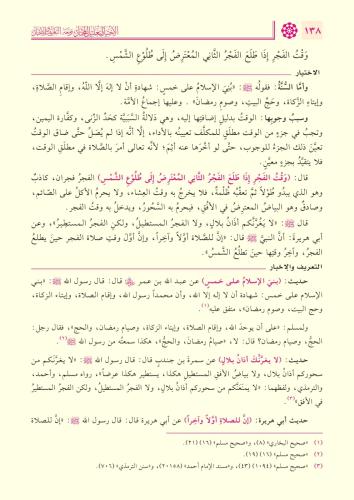 ١٣٨
وَقْتُ الفَجْرِ إذَا طَلَعَ الفَجْرُ الثَّانِي المُعْتَرِضُ إلَى طُلُوعِ الشَّمْسِ.
الاختيار
وأمَّا السُّنَّةُ: فقولُه ﷺ: «بُنِيَ الإسلامُ على خمسٍ: شهادةِ أنْ لا إلهَ إلَّا اللّٰهُ، وإقامِ الصَّلاةِ،
وإيتاءِ الزَّكاةِ، وحَجِّ البيتِ، وصومِ رمضانَ». وعليها إجماعُ الأمَّةِ.
وسببُ وجوبِها: الوقتُ بدليلِ إضافتِها إليه، وهي دلالةُ السَّببيَّةِ كحدِّ الزِّنى، وكفَّارةِ اليمينِ،
وتجبُ في جزءٍ من الوقتِ مطلقٍ للمكلَّفِ تعيينُه بالأداءِ، إلَّا أنَّه إذا لم يُصَلِّ حتَّى ضاقَ الوقتُ
تعيَّنَ ذلك الجزءُ للوجوبِ، حتَّى لو أخَّرها عنه أثِمَ؛ لأنَّه تعالى أمرَ بالصَّلاةِ في مطلقِ الوقتِ،
فلا يتقيَّدُ بجزءٍ معيَّنٍ.
قال: (وَقْتُ الفَجْرِ إذَا طَلَعَ الفَجْرُ الثَّانِي المُعْتَرِضُ إلَى طُلُوعِ الشَّمْسِ) الفجرُ فجرانِ، كاذبٌ
وهو الذي يبدُو طُولاً ثمَّ تعقُبُه ظُلمةٌ، فلا يخرجُ به وقتُ العِشاءِ، ولا يحرمُ الأكلُ على الصَّائمِ،
وصادقٌ وهو البياضُ المعترِضُ في الأفقِ، فيحرمُ به السَّحُورُ، ويدخلُ به وقتُ الفجرِ.
قال ﷺ: «لا يَغُرَّنَّكُم أذَانُ بلالٍ، ولا الفجرُ المستطيلُ، ولكنِ الفجرُ المستطيرُ»، وعن
أبي هريرةَ: أنَّ النبيَّ ﷺ قال: «إنَّ للصَّلاةِ أوَّلاً وآخِراً، وإنَّ أوَّلَ وقتِ صلاةِ الفجرِ حينَ يطلعُ
الفجرُ، وآخِرَ وقتِها حينَ تطلُعُ الشَّمْسُ».
التعريف والإخبار
حديث: (بني الإسلام على خمس) عن عبد الله بن عمر قال: قال رسول الله ﷺ: «بني
الإسلام على خمس: شهادة أن لا إله إلا الله، وأن محمداً رسول الله، وإقام الصلاة، وإيتاء الزكاة،
وحج البيت، وصوم رمضان»، متفق عليه(١).
ولمسلم: «على أن يوحدَ الله، وإقامِ الصلاة، وإيتاء الزكاة، وصيام رمضان، والحج»، فقال رجل:
الحجِّ، وصيامِ رمضان؟ قال: لا، «صيامِ رمضانَ، والحجِّ»، هكذا سمعته من رسول الله ﷺ(٢).
حديث: (لا يغرَّنَّكَ أذانُ بلالٍ) عن سمرة بن جندبٍ قال: قال رسول الله ﷺ: «لا يغرَّنكم من
سحوركم أذانُ بلال، ولا بياضُ الأفقِ المستطيل هكذا، يستطير هكذا عرضاً»، رواه مسلم، وأحمد،
والترمذي، ولفظهما: «لا يمنَعنَّكم من سحوركم أذانُ بلال، ولا الفجرُ المستطيلُ، ولكن الفجرُ المستطيرُ
في الأفق»(٣).
حديث أبي هريرة: (إنَّ للصلاةِ أوَّلاً وآخراً) عن أبي هريرة قال: قال رسول الله ﷺ: «إنَّ للصلاة
(١) «صحيح البخاري» (٨)، و«صحيح مسلم» (١٦) (٢١).
(٢) «صحيح مسلم» (١٦) (١٩).
(٣) «صحيح مسلم» (١٠٩٤) (٤٣)، و«مسند الإمام أحمد» (٢٠١٥٨)، و«سنن الترمذي» (٧٠٦).